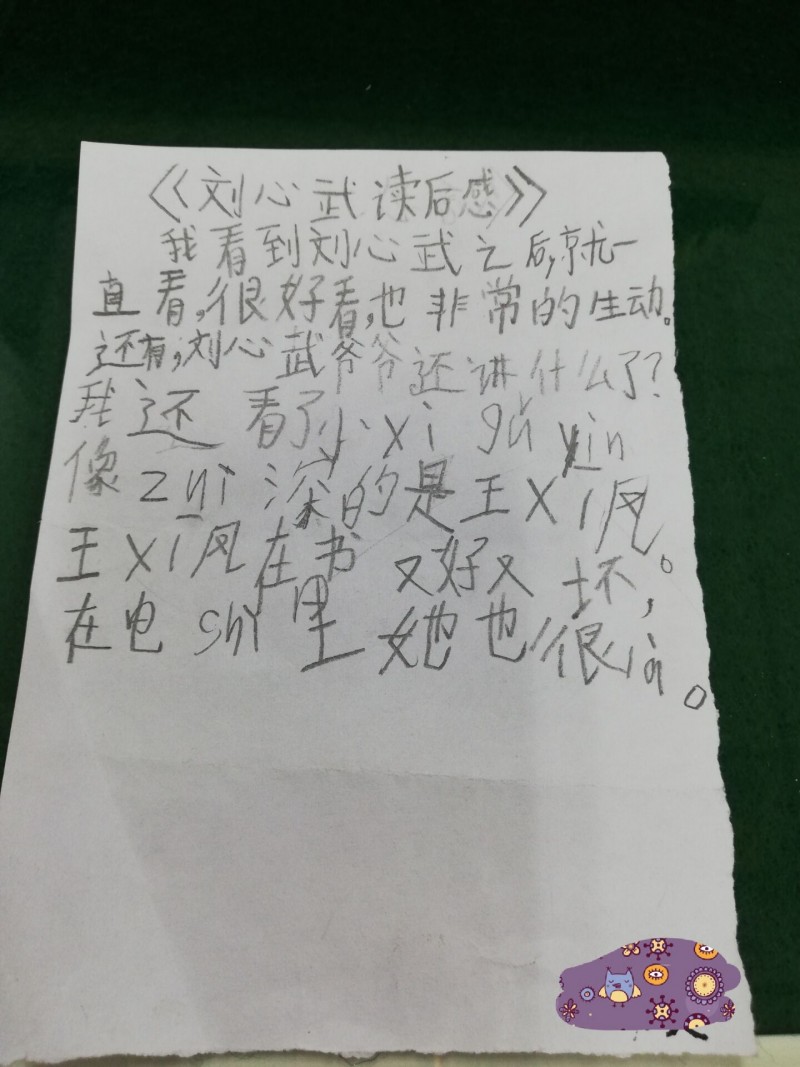 《刘心武读后感》
我看到刘心武之后,就一
直看,很好看,也非常的生动。
还有,刘心武爷爷还讲什么了?
我还看了小xi gǔ yin
像zui深的是王Xi凤。
王xī凤在书又好又坏,
在电shi里她也很